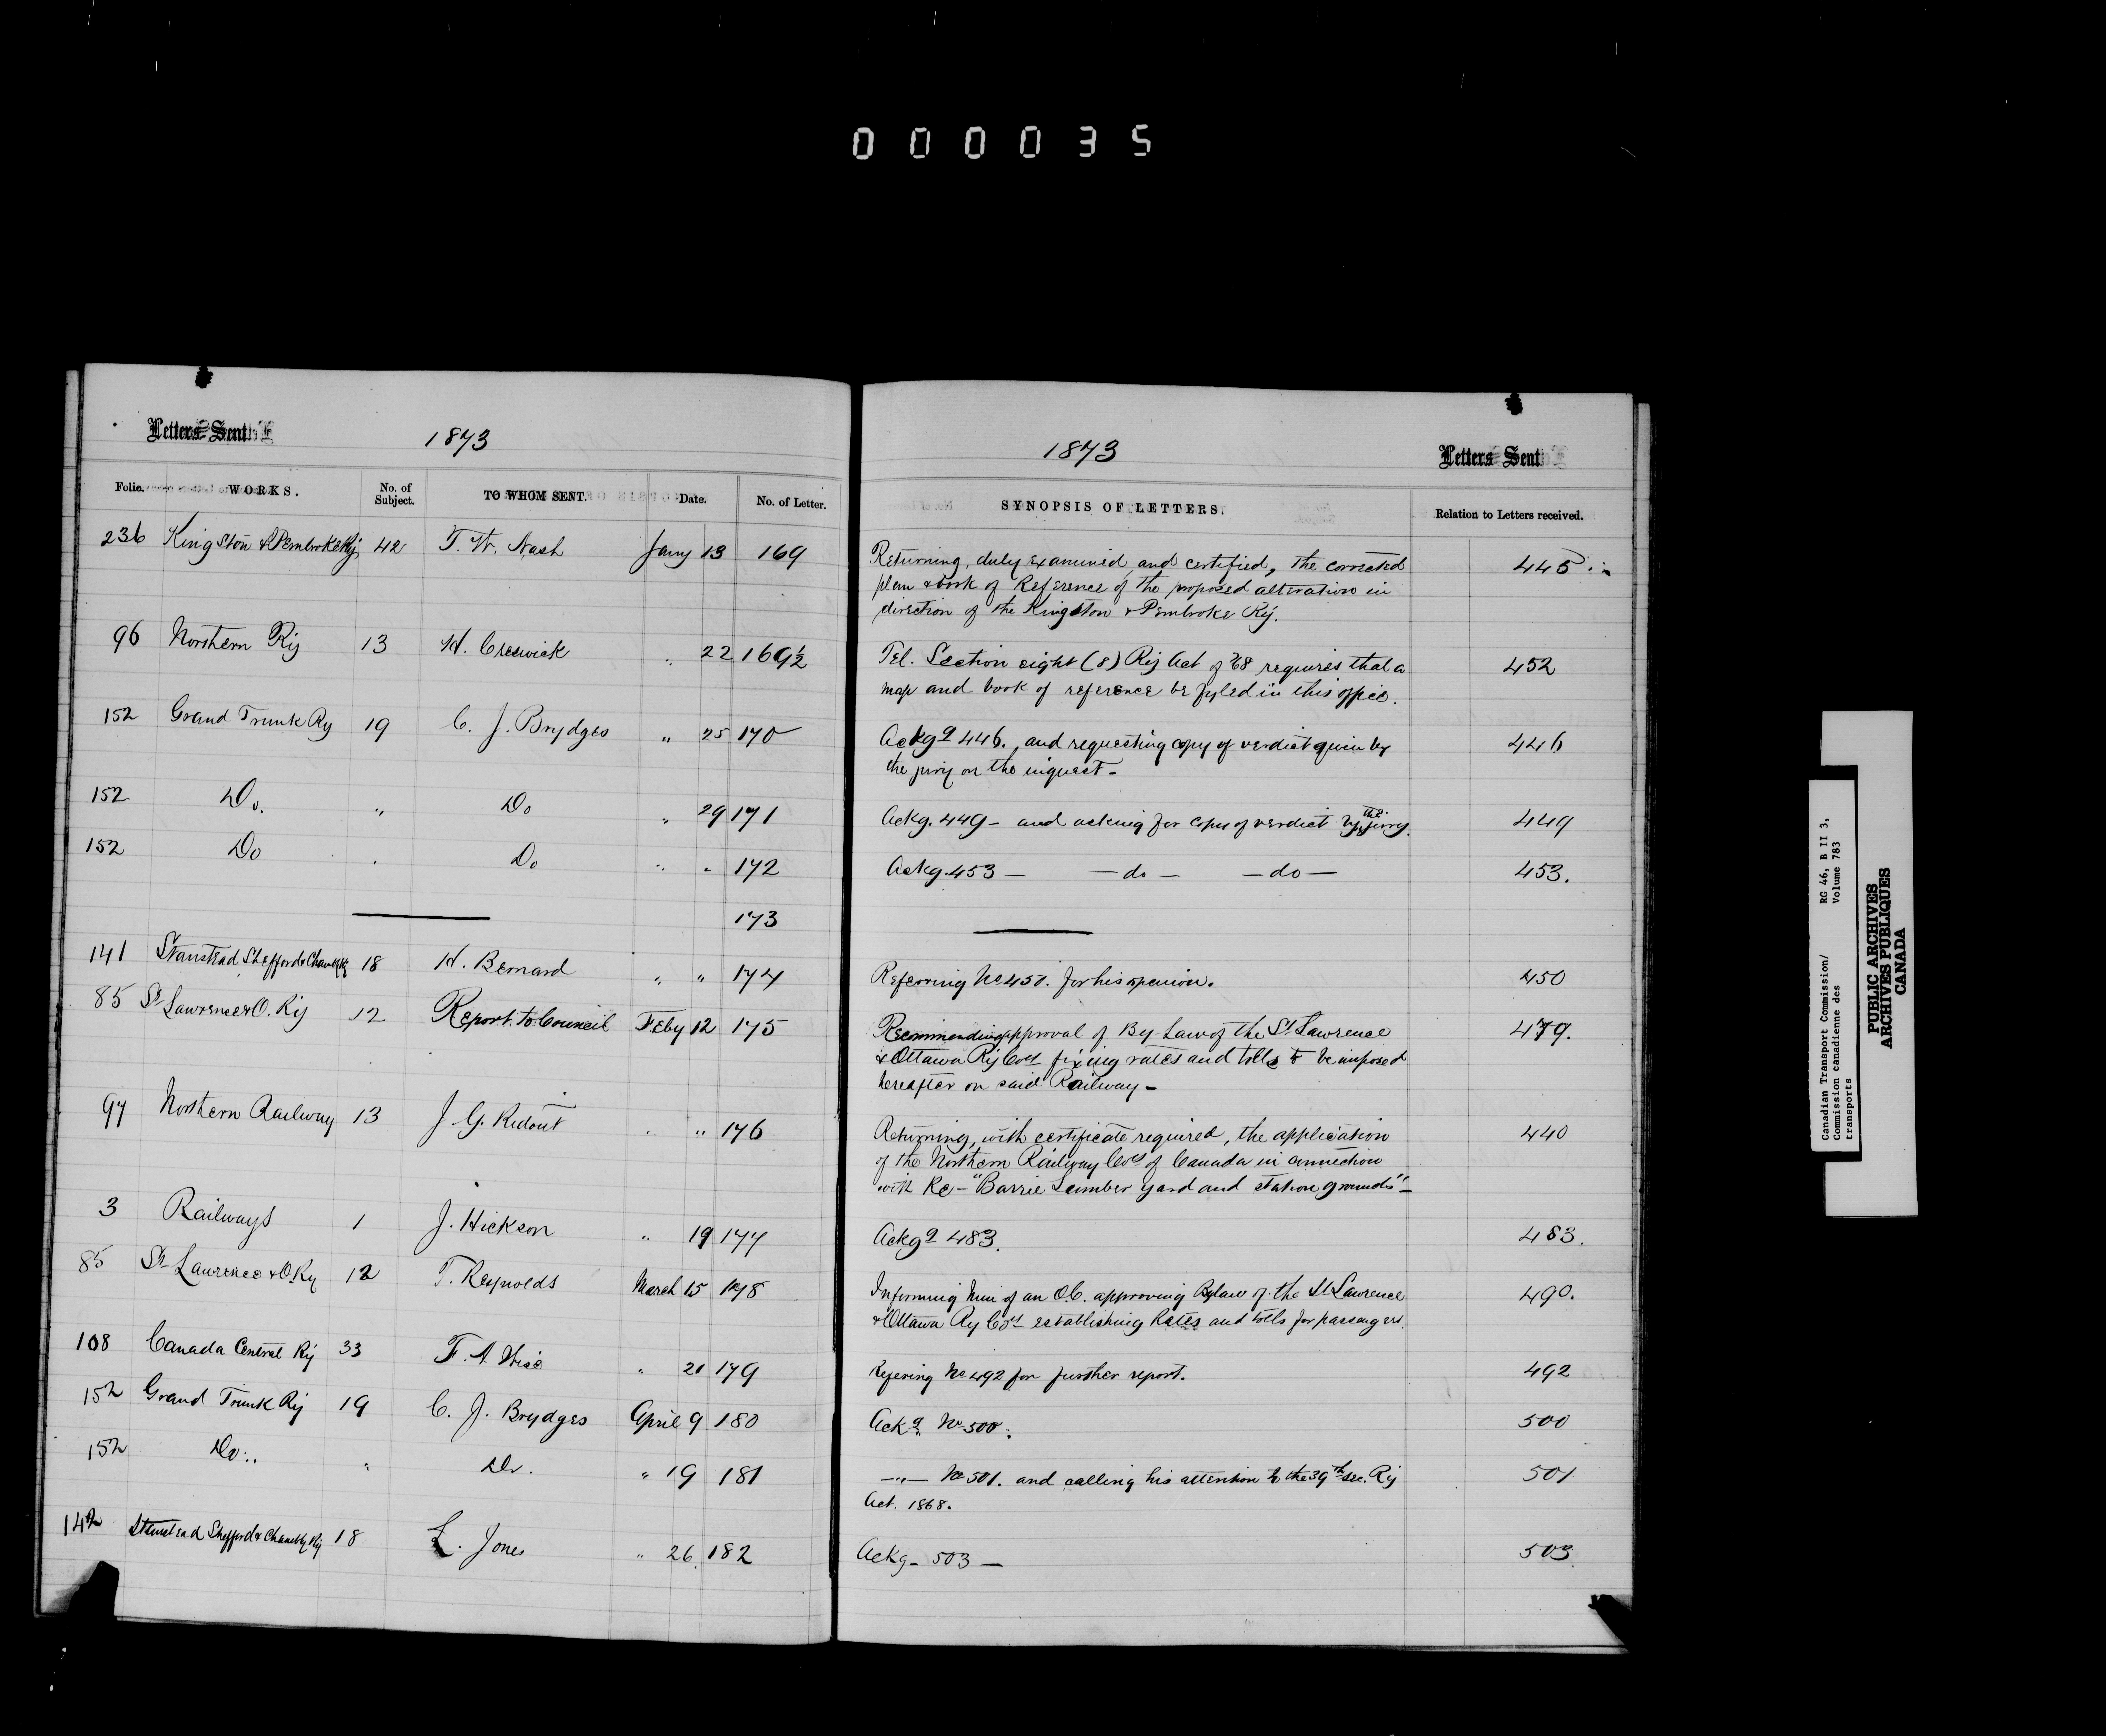 000035
Letters Sent
1873
Folio. WORKS. No. of Subject. TO WHOM SENT. Date. No. of Letter.
236 Kingston & Pembroke Ry 42 T. W. Nash Jany 13 169
96 Northern Ry 13 H. Creswick " 22 169½
152 Grand Trunk Ry 19 C. J. Brydges " 25 170
152 Do. " Do " 29 171
152 Do " Do " " 172
173
141 Stanstead Shefford & Chambly Ry 18 H. Bernard " " 174
85 St Lawrence & O. Ry 12 Report to Council Feby 12 175
97 Northern Railway 13 J. G. Ridout " " 176
3 Railways 1 J. Hickson " 19 177
85 St Lawrence & O. Ry 12 T. Reynolds March 15 178
108 Canada Central Ry 33 F. A. Wise " 21 179
152 Grand Trunk Ry 19 C. J. Brydges April 9 180
152 Do. " Do. " 19 181
142 Stanstead Shefford & Chambly Ry 18 L. Jones " 26 182
1873
Letters Sent
SYNOPSIS OF LETTERS. Relation to Letters received.
Returning, duly examined and certified, the corrected 445
plan & book of Reference of the proposed alterations in
direction of the Kingston & Pembroke Ry.
Tel. Section eight (8) Ry Act of '68 requires that a 452
map and book of reference be fyled in this office.
Ackg 446, and requesting copy of verdict given by 446
the jury on the inquest -
Ackg. 449 - and asking for copy of verdict by the jury. 449
Ackg. 453 — — do — — do — 453.
Referring No 450. for his opinion. 450
Recommending approval of By-Law of the St Lawrence 479.
& Ottawa Ry Coy fixing rates and tolls to be imposed
hereafter on said Railway -
Returning, with certificate required, the application 440
of the Northern Railway Coy of Canada in connection
with Re - "Barrie Lumber yard and station grounds" -
Ackg 483. 483.
Informing him of an O.C. approving Bylaw of the St Lawrence 490.
& Ottawa Ry Coy establishing Rates and tolls for passengers.
Refering No 492 for further report. 492
Ackg No 500. 500
—"— No 501. and calling his attention to the 39th sec. Ry 501
Act. 1868.
Ackg - 503 — 503
Canadian Transport Commission/ RG 46, B II 3,
Commission canadienne des Volume 783
transports
PUBLIC ARCHIVES
ARCHIVES PUBLIQUES
CANADA